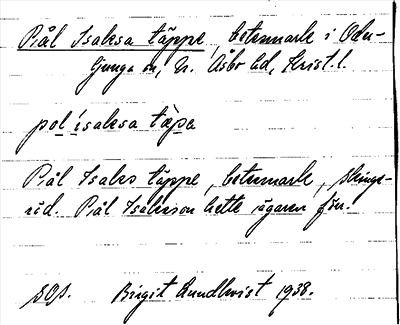 Pål Isaksa täppe, betesmark i Odu-
ljunga sn, N. Åsbo hd, Krist. l.
pol isaksa tæpa
Pål Isaks täppe, betesmark, Skinge-
röd. Pål Isaksson hette ägaren förr.
SOA. Birgit Lundkvist 1938.